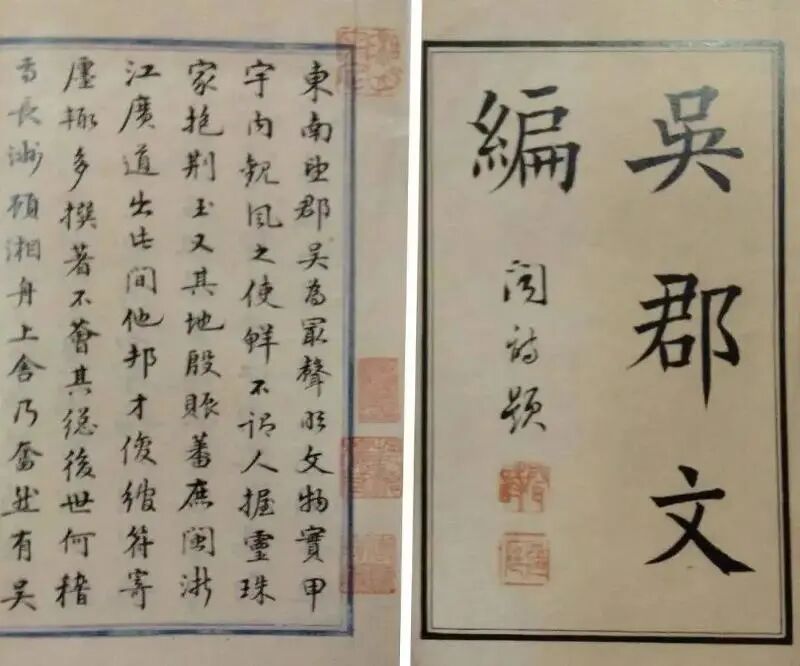 吳郡文
編
題
東南望郡吳為冣聲明文物實甲
宇內觀風之使鮮不謂人握靈珠
家抱荆玉又其地殷賑蕃庶閩浙
江廣道出此間他邦才俊綰符寄
廛輒多撰著不薈其總後世何稽
長洲顧湘舟上舍乃奮然有吳